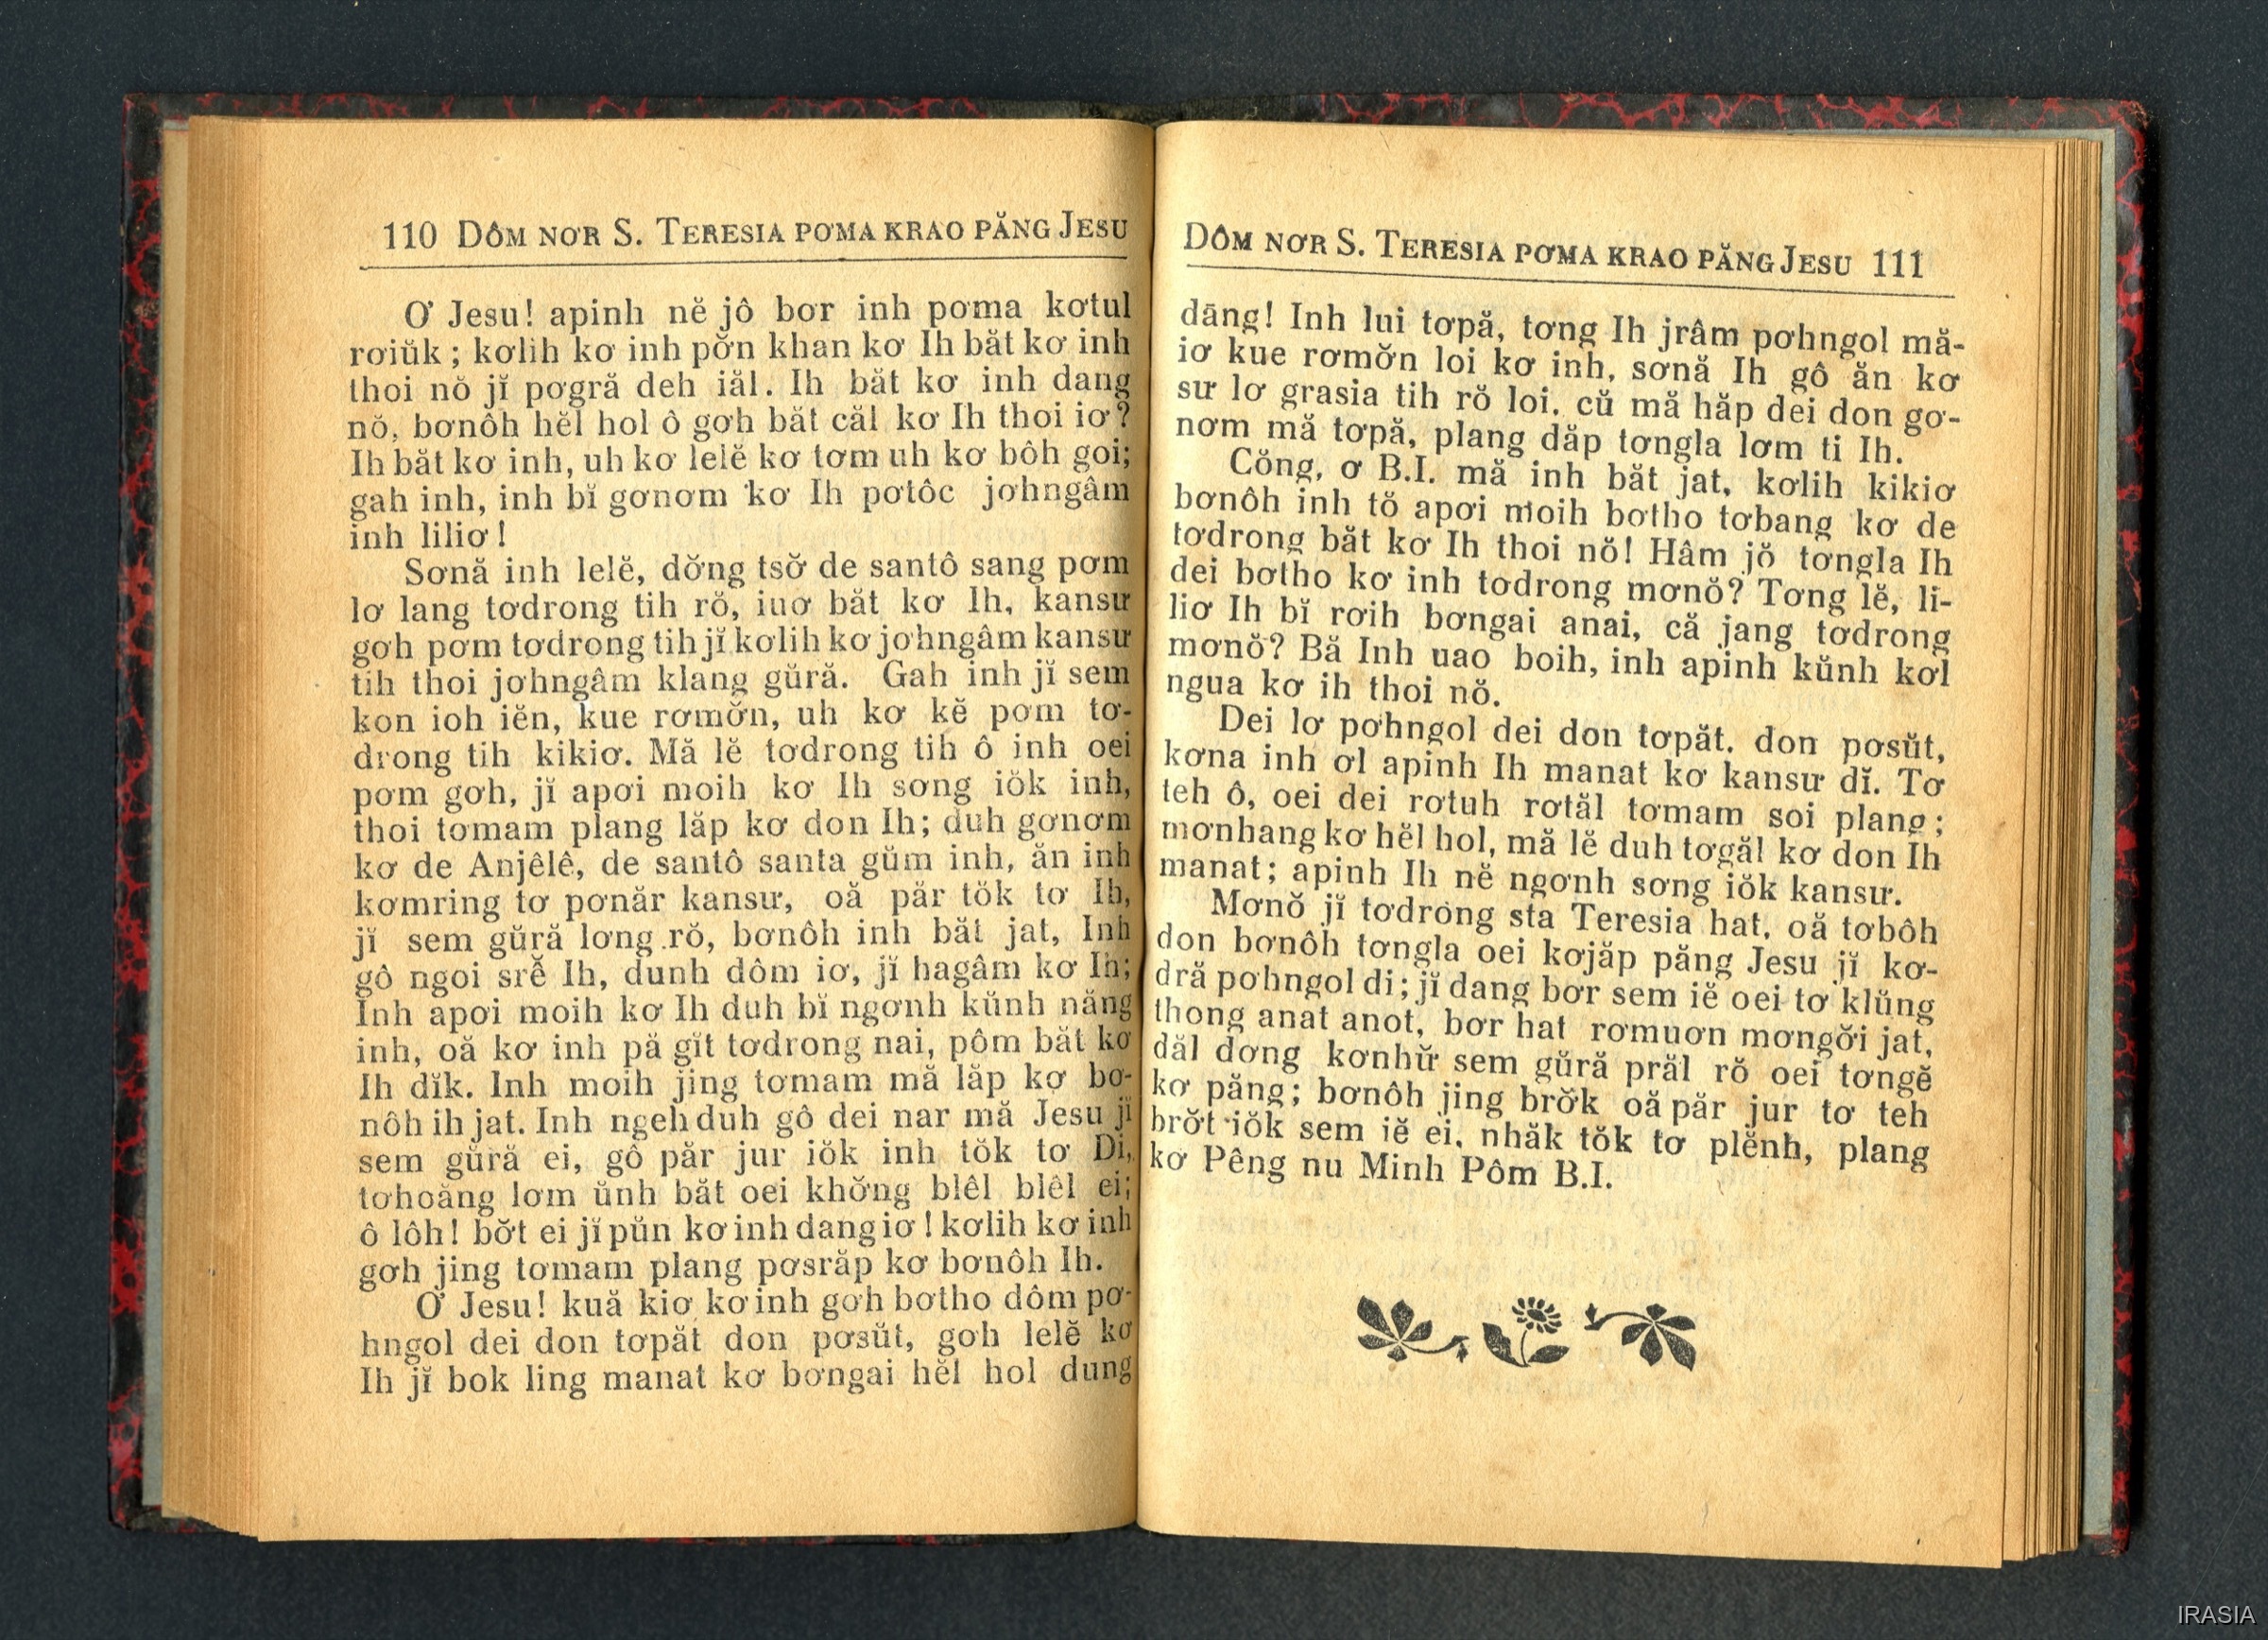 110 DÔM NƠR S. TERESIA PƠMA KRAO PĂNG JESU
Ơ Jesu! apinh nĕ jô bơr inh pơma kơtul
rơiŭk ; kơlih kơ inh pơ̆n khan kơ Ih băt kơ inh
thoi nŏ jĭ pơgră deh iăl. Ih băt kơ inh dang
nŏ, bơnôh hĕl hol ô gơh băt căl kơ Ih thoi iơ?
Ih băt kơ inh, uh kơ lelĕ kơ tơm uh kơ bôh goi;
gah inh, inh bĭ gơnơm kơ Ih pơtôc jơhngâm
inh liliơ!
Sơnă inh lelĕ, dơ̆ng tsơ̆ de santô sang pơm
lơ lang tơdrong tih rŏ, iuơ băt kơ Ih, kansư
gơh pơm tơdrong tih jĭ kơlih kơ jơhngâm kansư
tih thoi jơhngâm klang gŭră. Gah inh jĭ sem
kon ioh iĕn, kue rơmơ̆n, uh kơ kĕ pơm tơ-
drong tih kikiơ. Mă lĕ tơdrong tih ô inh oei
pơm gơh, jĭ apơi moih kơ Ih sơng iŏk inh,
thoi tơmam plang lăp kơ don Ih; duh gơnơm
kơ de Anjêlê, de santô santa gŭm inh, ăn inh
kơmring tơ pơnăr kansư, oă păr tŏk tơ Ih,
jĭ sem gŭră lơng rŏ, bơnôh inh băt jat, Inh
gô ngoi srê̆ Ih, dunh dôm iơ, jĭ hagâm kơ Ih;
Inh apơi moih kơ Ih duh bĭ ngơnh kŭnh năng
inh, oă kơ inh pă gĭt tơdrong nai, pôm băt kơ
Ih dĭk. Inh moih jing tơmam mă lăp kơ bơ-
nôh ih jat. Inh ngeh duh gô dei nar mă Jesu jĭ
sem gŭră ei, gô păr jur iŏk inh tŏk tơ Di,
tơhoăng lơm ŭnh băt oei khơ̆ng blêl blêl ei;
ô lôh! bơ̆t ei jĭ pŭn kơ inh dang iơ! kơlih kơ inh
gơh jing tơmam plang pơsrăp kơ bơnôh Ih.
Ơ Jesu! kuă kiơ kơ inh gơh bơtho dôm pơ-
hngol dei don tơpăt don pơsŭt, gơh lelĕ kơ
Ih jĭ bok ling manat kơ bơngai hĕl hol dung
DÔM NƠR S. TERESIA PƠMA KRAO PĂNG JESU 111
dăng! Inh lui tơpă, tơng Ih jrâm pơhngol mă-
iơ kue rơmơ̆n loi kơ inh, sơnă Ih gô ăn kơ
sư lơ grasia tih rŏ loi, cŭ mă hăp dei don gơ-
nơm mă tơpă, plang dăp tơngla lơm ti Ih.
Cŏng, ơ B.I. mă inh băt jat, kơlih kikiơ
bơnôh inh tŏ apơi moih bơtho tơbang kơ de
tơdrong băt kơ Ih thoi nŏ! Hâm jŏ tơngla Ih
dei bơtho kơ inh tơdrong mơnŏ? Tơng lĕ, li-
liơ Ih bĭ rơih bơngai anai, că jang tơdrong
mơnŏ? Bă Inh uao boih, inh apinh kŭnh kơl
ngua kơ ih thoi nŏ.
Dei lơ pơhngol dei don tơpăt, don pơsŭt,
kơna inh ơl apinh Ih manat kơ kansư dĭ. Tơ
teh ô, oei dei rơtuh rơtăl tơmam soi plang;
mơnhang kơ hĕl hol, mă lĕ duh tơgăl kơ don Ih
manat; apinh Ih nĕ ngơnh sơng iŏk kansư.
Mơnŏ jĭ tơdrong sta Teresia hat, oă tơbôh
don bơnôh tơngla oei kơjăp păng Jesu jĭ kơ-
dră pơhngol di; jĭ dang bơr sem iĕ oei tơ klŭng
thong anat anot, bơr hat rơmuơn mơngơ̆i jat,
dăl dơng kơnhư̆ sem gŭră prăl rŏ oei tơngĕ
kơ păng; bơnôh jing brơ̆k oă păr jur tơ teh
brơ̆t iŏk sem iĕ ei, nhăk tŏk tơ plĕnh, plang
kơ Pêng nu Minh Pôm B.I.
IRASIA